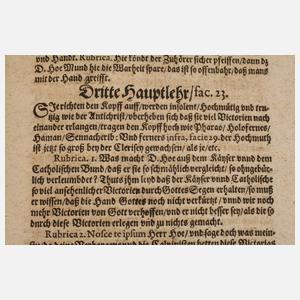 und Handt. Rubrica. Hie köndt der Zuhörer sicher pfeiffen/dann dz
D. Hoe Mund hie die Warheit spare/das ist so offenbar/daß mans
mit der Hand greifft.
Dritte Hauptlehr/fac. 23.
SJe richten den Kopff auff/werden insolent/Hochmütig vnd tru-
tzig wie der Antichrist/vberheben sich daß sie viel Victorien nach
einander erlangen/tragen den Kopff hoch wie Pharao/Holofernes/
Haman/Sennacherib: Vnd ferners infra, facie 29. der Hochmuth
ist jetzt so groß bey der Clerisey gewachsen/als je/etc.
Rubrica. 1. Was macht D. Hoe auß dem Käyser vnnd dem
Catholischen Bund/daß er sie so schmählich vergleicht/so ohngebür-
lich verleumbdet? Thuts ihm leyd daß der Käyser vnnd Catholische
so viel ansehenlicher Victorien durch Gottes Segen erhalten/so muß
er wissen/daß die Hand Gottes noch nicht verkürtzt/vnnd wir noch
mehr Victorien von Gott verhoffen/vnd er nicht besser sey/als die so
durch diese Victorien erlegen vnd zu nichts gemacht.
Rubrica 2. Nosce te ipsum Herr Hoe/vnd sage doch was mein-
die Calvinisten hetten diese Victorias